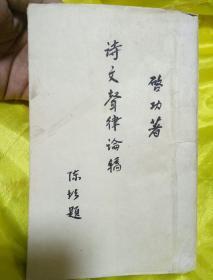 啓功著
诗文聲律论稿
陈垣题